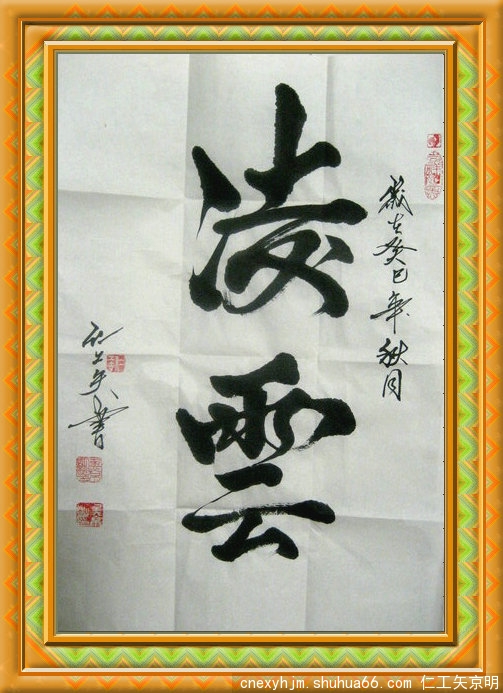 歲在癸巳年秋月
凌雲
仁工矢書
cnexyhjm.shuhua66.com 仁工矢京明